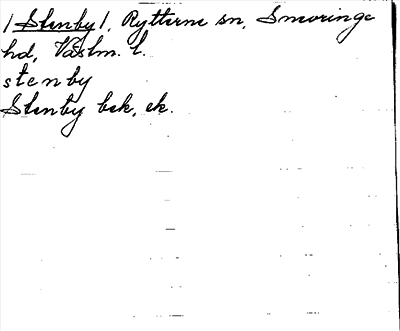 /Stenby/, Rytterne sn, Snevringe
hd, Västm. l.
stenby
Stenby bek, ek.